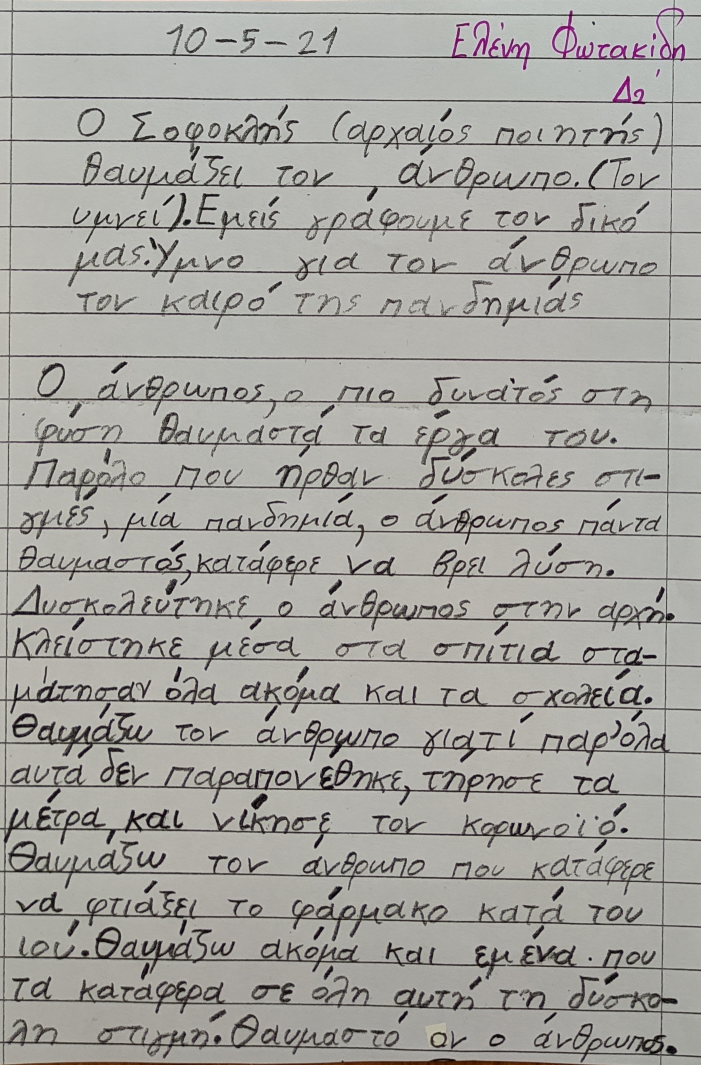 10-5-21 Ελένη Φωτακίδη
Δ2'
Ο Σοφοκλής (αρχαίος ποιητής)
θαυμάζει τον άνθρωπο. (Τον
υμνεί). Εμείς γράφουμε τον δικό
μας. Ύμνο για τον άνθρωπο
τον καιρό της πανδημίας
Ο άνθρωπος, ο πιο δυνατός στη
φύση θαυμαστά τα έργα του.
Παρόλο που ήρθαν δύσκολες στι-
γμές, μία πανδημία, ο άνθρωπος πάντα
θαυμαστός, κατάφερε να βρει λύση.
Δυσκολεύτηκε ο άνθρωπος στην αρχή.
Κλείστηκε μέσα στα σπίτια στα-
μάτησαν όλα ακόμα και τα σχολεία.
Θαυμάζω τον άνθρωπο γιατί παρ'όλα
αυτά δεν παραπονέθηκε, τήρησε τα
μέτρα, και νίκησε τον κορωνοϊό.
Θαυμάζω τον άνθρωπο που κατάφερε
να φτιάξει το φάρμακο κατά του
ιού. Θαυμάζω ακόμα και εμένα. που
τα κατάφερα σε όλη αυτή τη δύσκο-
λη στιγμή. Θαυμαστό ον ο άνθρωπος.